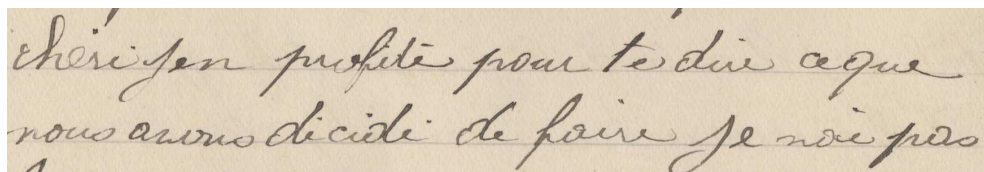 chéri jen profite pour te dire ceque
nous avons décidé de faire Je nai pas